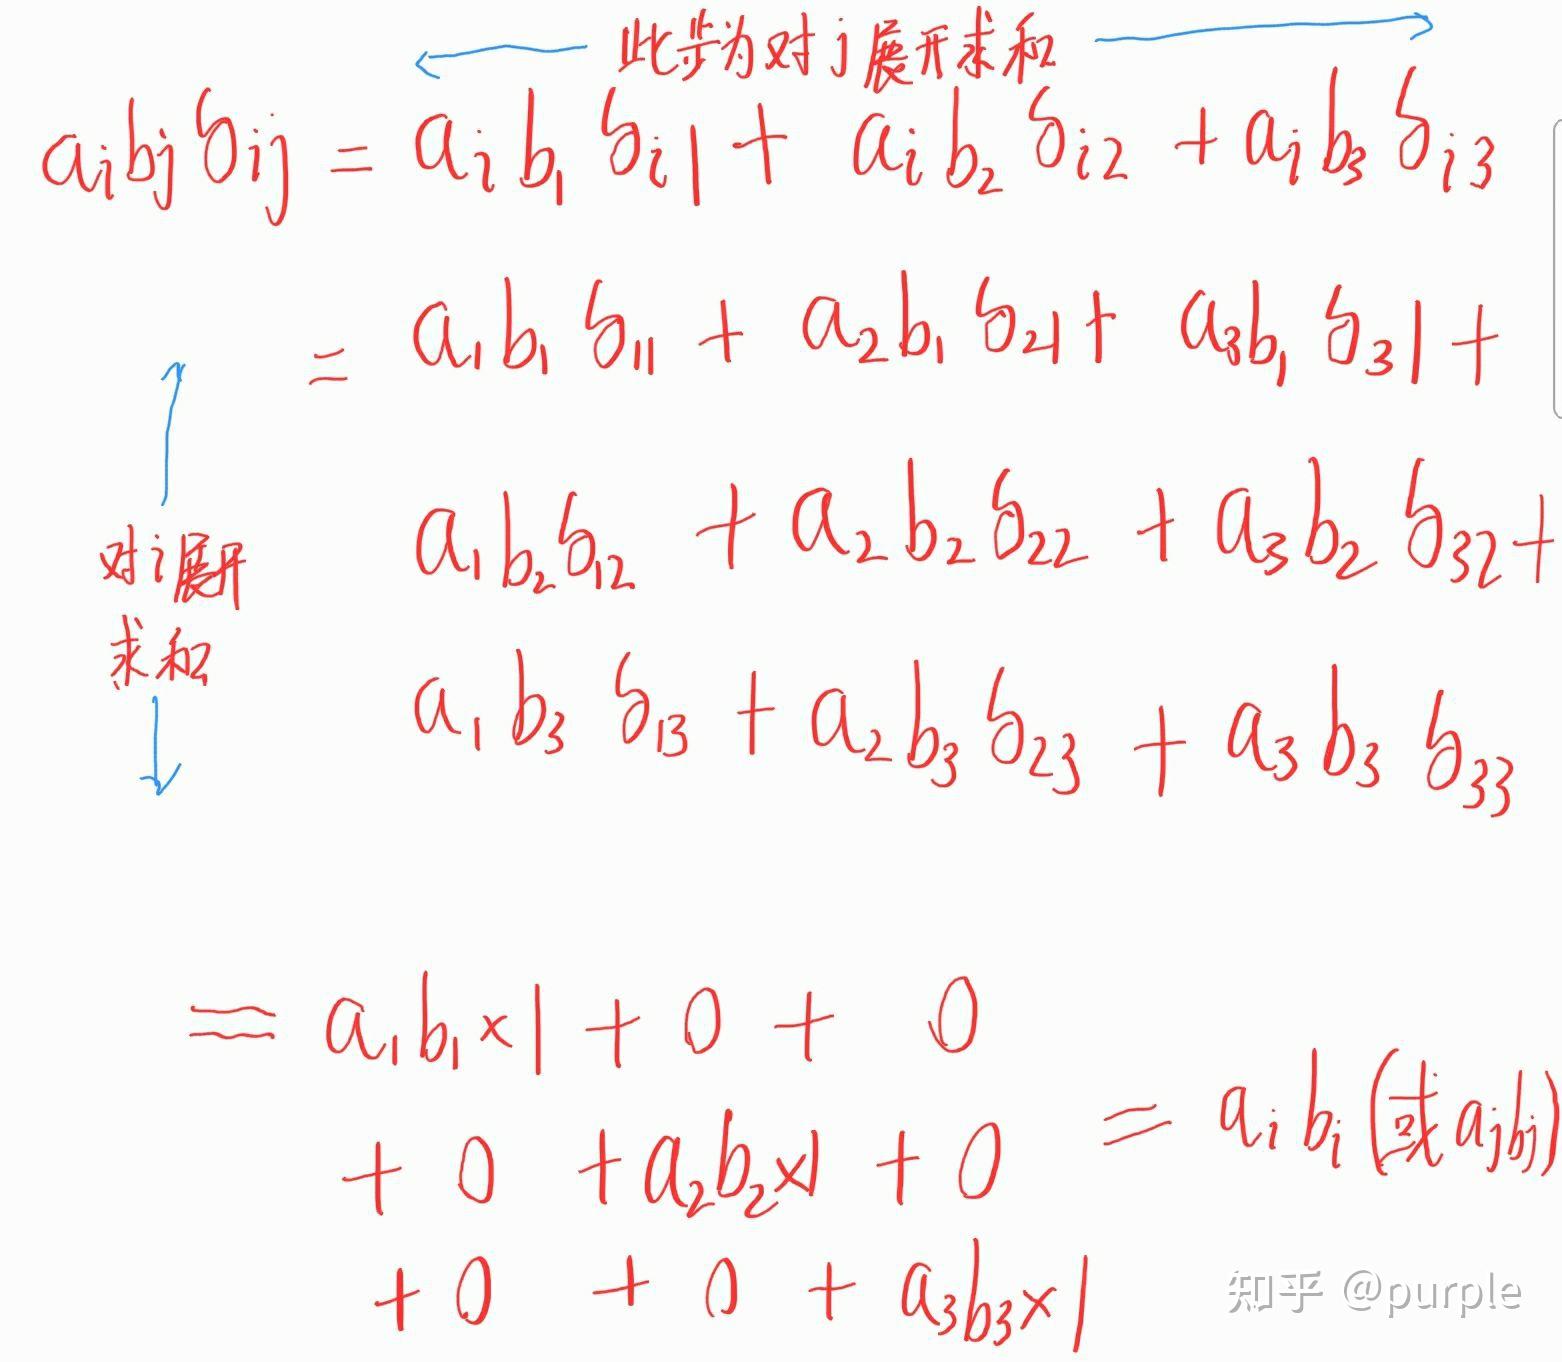 此步为对j展开求和
aᵢbⱼδᵢⱼ = aᵢb₁δᵢ₁ + aᵢb₂δᵢ₂ + aᵢb₃δᵢ₃
= a₁b₁δ₁₁ + a₂b₁δ₂₁ + a₃b₁δ₃₁ +
a₁b₂δ₁₂ + a₂b₂δ₂₂ + a₃b₂δ₃₂ +
对i展开
求和
a₁b₃δ₁₃ + a₂b₃δ₂₃ + a₃b₃δ₃₃
= a₁b₁×1 + 0 + 0
+ 0 + a₂b₂×1 + 0 = aᵢbᵢ(或aⱼbⱼ)
+ 0 + 0 + a₃b₃×1
知乎 @purple